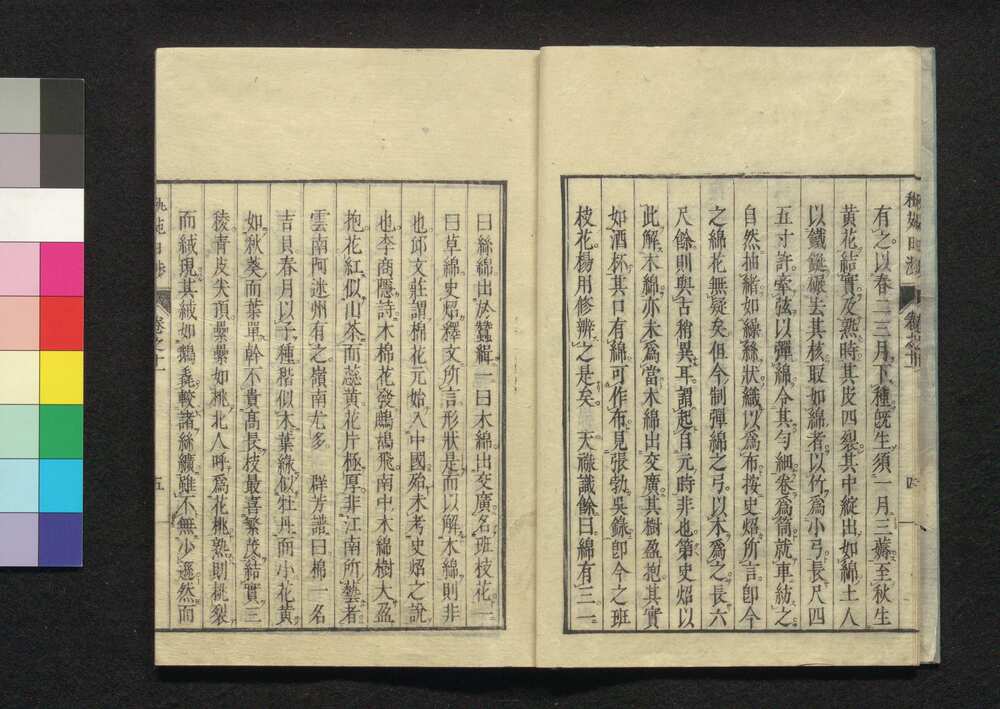 有之以春二三月下種旣生須一月三薅至秋生
黃花結實及熟時其皮四裂其中綻出如綿土人
以鐵鋋碾去其核取如綿者以竹爲小弓長尺四
五寸許牽弦以彈綿令其勻細卷爲筒就車紡之
自然抽緒如繰絲狀織以爲布按史炤所言卽今
之綿花無疑矣但今制彈綿之弓以木爲之長六
尺餘則與古稍異耳謂起自元時非也第史炤以
此解木綿亦未爲當木綿出交廣其樹盈抱其實
如酒杯其口有綿可作布見張勃吳錄卽今之班
枝花楊用修辨之是矣　天祿識餘曰綿有三一
四
曰絲綿出於蠶緝一曰木綿出交廣名班枝花一
曰草綿史炤釋文所言形狀是而以解木綿則非
也邱文莊謂棉花元始入中國殆未考史炤之說
也李商隱詩木棉花發鷓鴣飛南中木綿樹大盈
抱花紅似山茶而蕊黃花片極厚非江南所藝者
雲南阿迷州有之嶺南尤多　群芳譜曰棉一名
吉貝春月以子種稭似木葉綠似牡丹而小花黃
如秋葵而葉單幹不貴高長枝最喜繁茂結實三
稜青皮尖頂纍纍如桃北人呼爲花桃熟則桃裂
而絨現其絨如鵝毳較諸絲纊雖不無少遜然而
卷之十
五